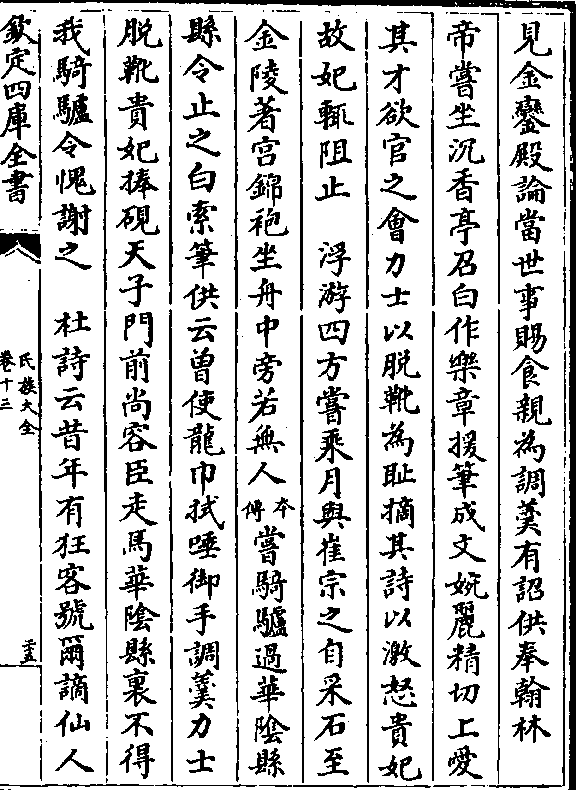 見金鑾殿論當世事賜食親為調羹有詔供奉翰林
帝嘗坐沉香亭召白作樂章援筆成文婉麗精切上愛
其才欲官之會力士以脱靴為耻摘其詩以激怒貴妃
故妃輒阻止　浮游四方嘗乘月與崔宗之自采石至
金陵著宫錦袍坐舟中旁若無人本傳嘗騎驢過華陰縣
縣令止之白索筆供云曾使龍巾拭唾御手調羹力士
脱靴貴妃捧硯天子門前尚容臣走馬華陰縣裏不得
我騎驢令愧謝之　杜詩云昔年有狂客號爾謫仙人
欽定四庫全書
氏族大全
卷十三
二十五